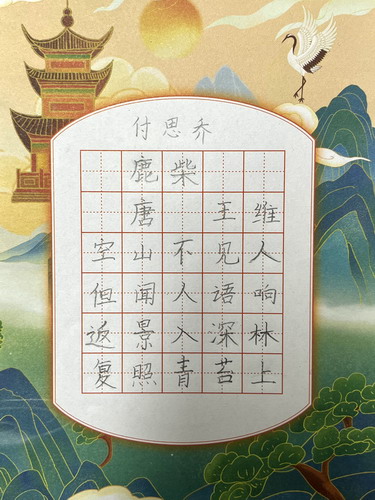 付思乔
鹿柴
唐 王维
空山不见人
但闻人语响
返景入深林
复照青苔上